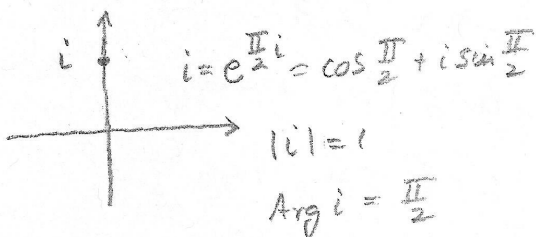 i
i = e^{\frac{π}{2}i} = cos \frac{π}{2} + i sin \frac{π}{2}
|i| = 1
Arg i = \frac{π}{2}